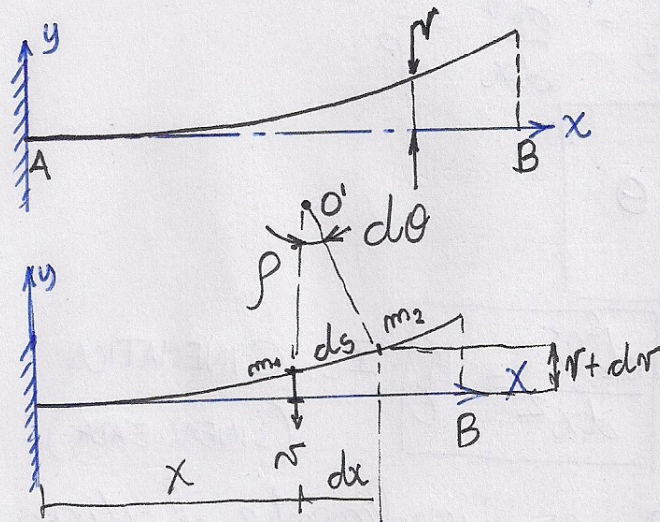 y
v
A
B
x
O'
dθ
ρ
y
m₁
ds
m₂
v + dv
x
B
v
x
dx